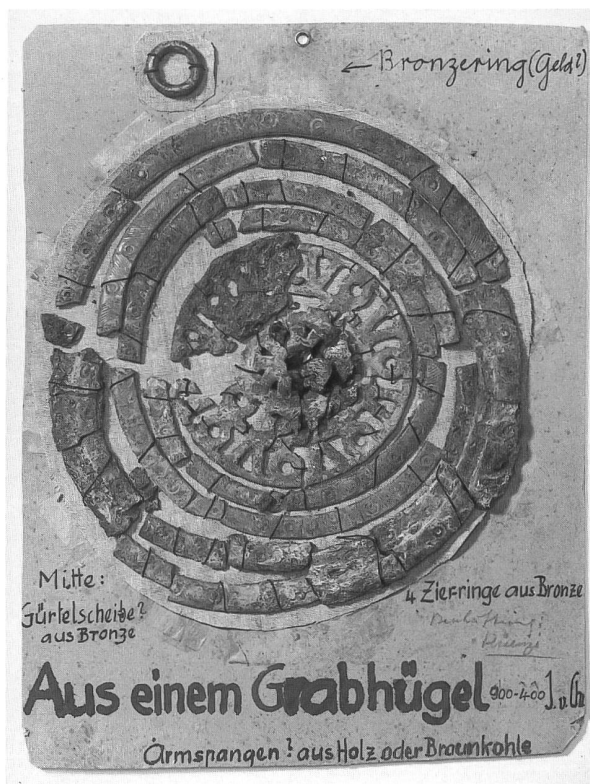 ← Bronzering (Geld?)
Mitte:
Gürtelscheibe?
aus Bronze
4 Zierringe aus Bronze
Aus einem Grabhügel 900-400 J. v. Chr
Armspangen? aus Holz oder Braunkohle